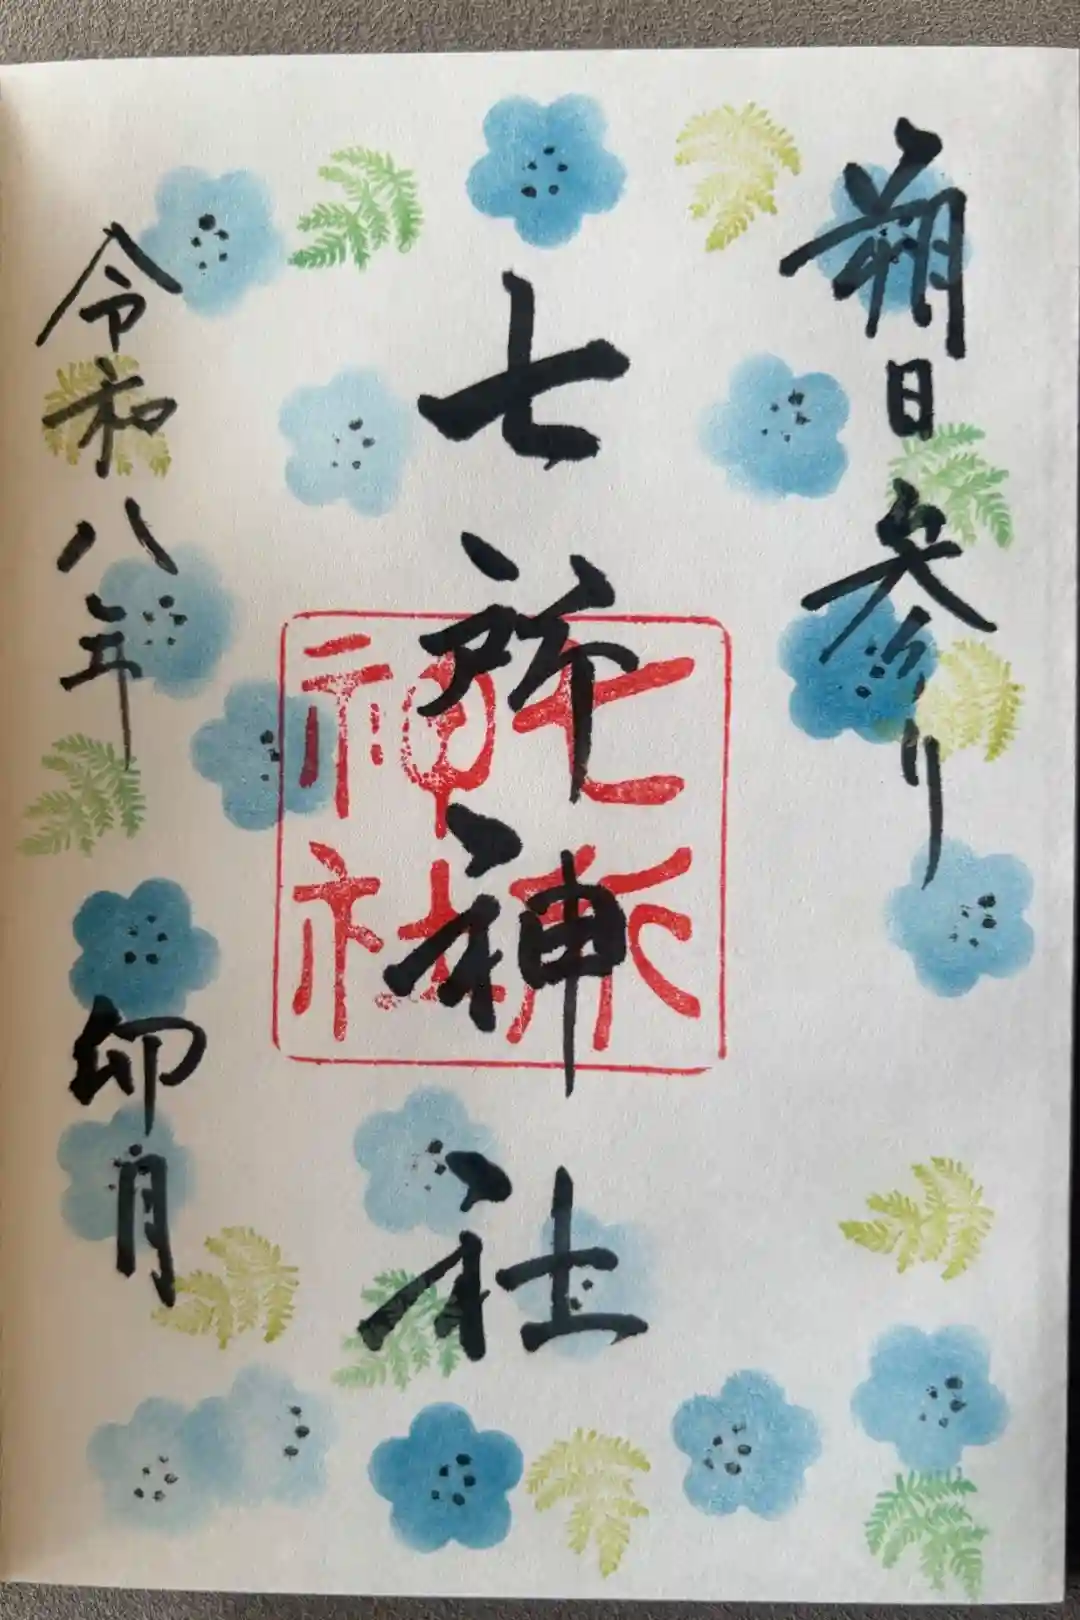 朔日参り
七所神社
七所神社
令和八年
卯月